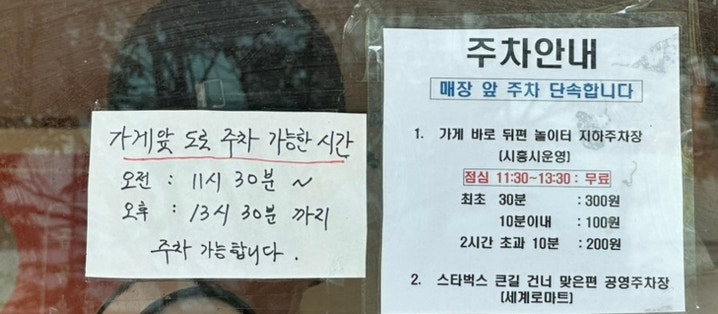 가게앞 도로 주차 가능한 시간
오전 : 11시 30분 ~
오후 : 13시 30분 까지
주차 가능합니다.
주차안내
매장 앞 주차 단속합니다
1. 가게 바로 뒤편 놀이터 지하주차장
(시흥시운영)
점심 11:30~13:30 : 무료
최초 30분 : 300원
10분이내 : 100원
2시간 초과 10분 : 200원
2. 스타벅스 큰길 건너 맞은편 공영주차장
(세계로마트)